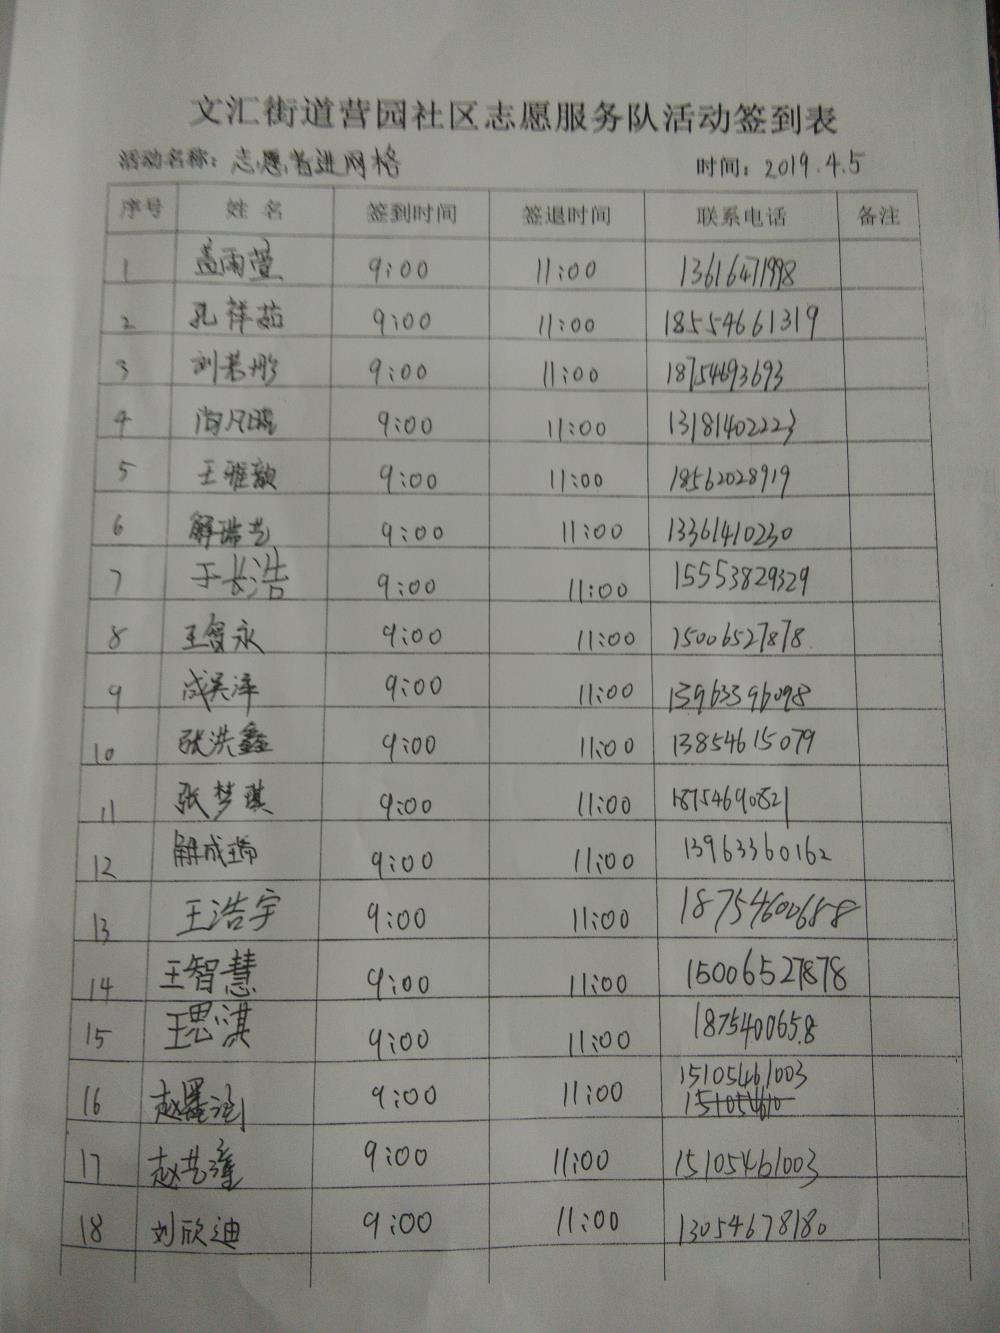 文汇街道营园社区志愿服务队活动签到表
活动名称：志愿者进网格 时间：2019.4.5
序号 姓名 签到时间 签退时间 联系电话 备注
1 盖雨萱 9:00 11:00 13616471998
2 孔祥茹 9:00 11:00 18554661319
3 刘若彤 9:00 11:00 18754693693
4 尚凡 9:00 11:00 13181402223
5 王雅歆 9:00 11:00 18562028919
6 解瑞艺 9:00 11:00 13361410230
7 于长浩 9:00 11:00 15553829329
8 王智永 9:00 11:00 15006527878
9 成昊泽 9:00 11:00 13963396098
10 张洪鑫 9:00 11:00 13854615079
11 张梦琪 9:00 11:00 18754690821
12 解成瑞 9:00 11:00 13963360162
13 王浩宇 9:00 11:00 18754600658
14 王智慧 9:00 11:00 15006527878
15 王思淇 9:00 11:00 1875400658
16 赵 9:00 11:00 15105461003
151054610
17 赵艺潼 9:00 11:00 15105461003
18 刘欣迪 9:00 11:00 13054678180